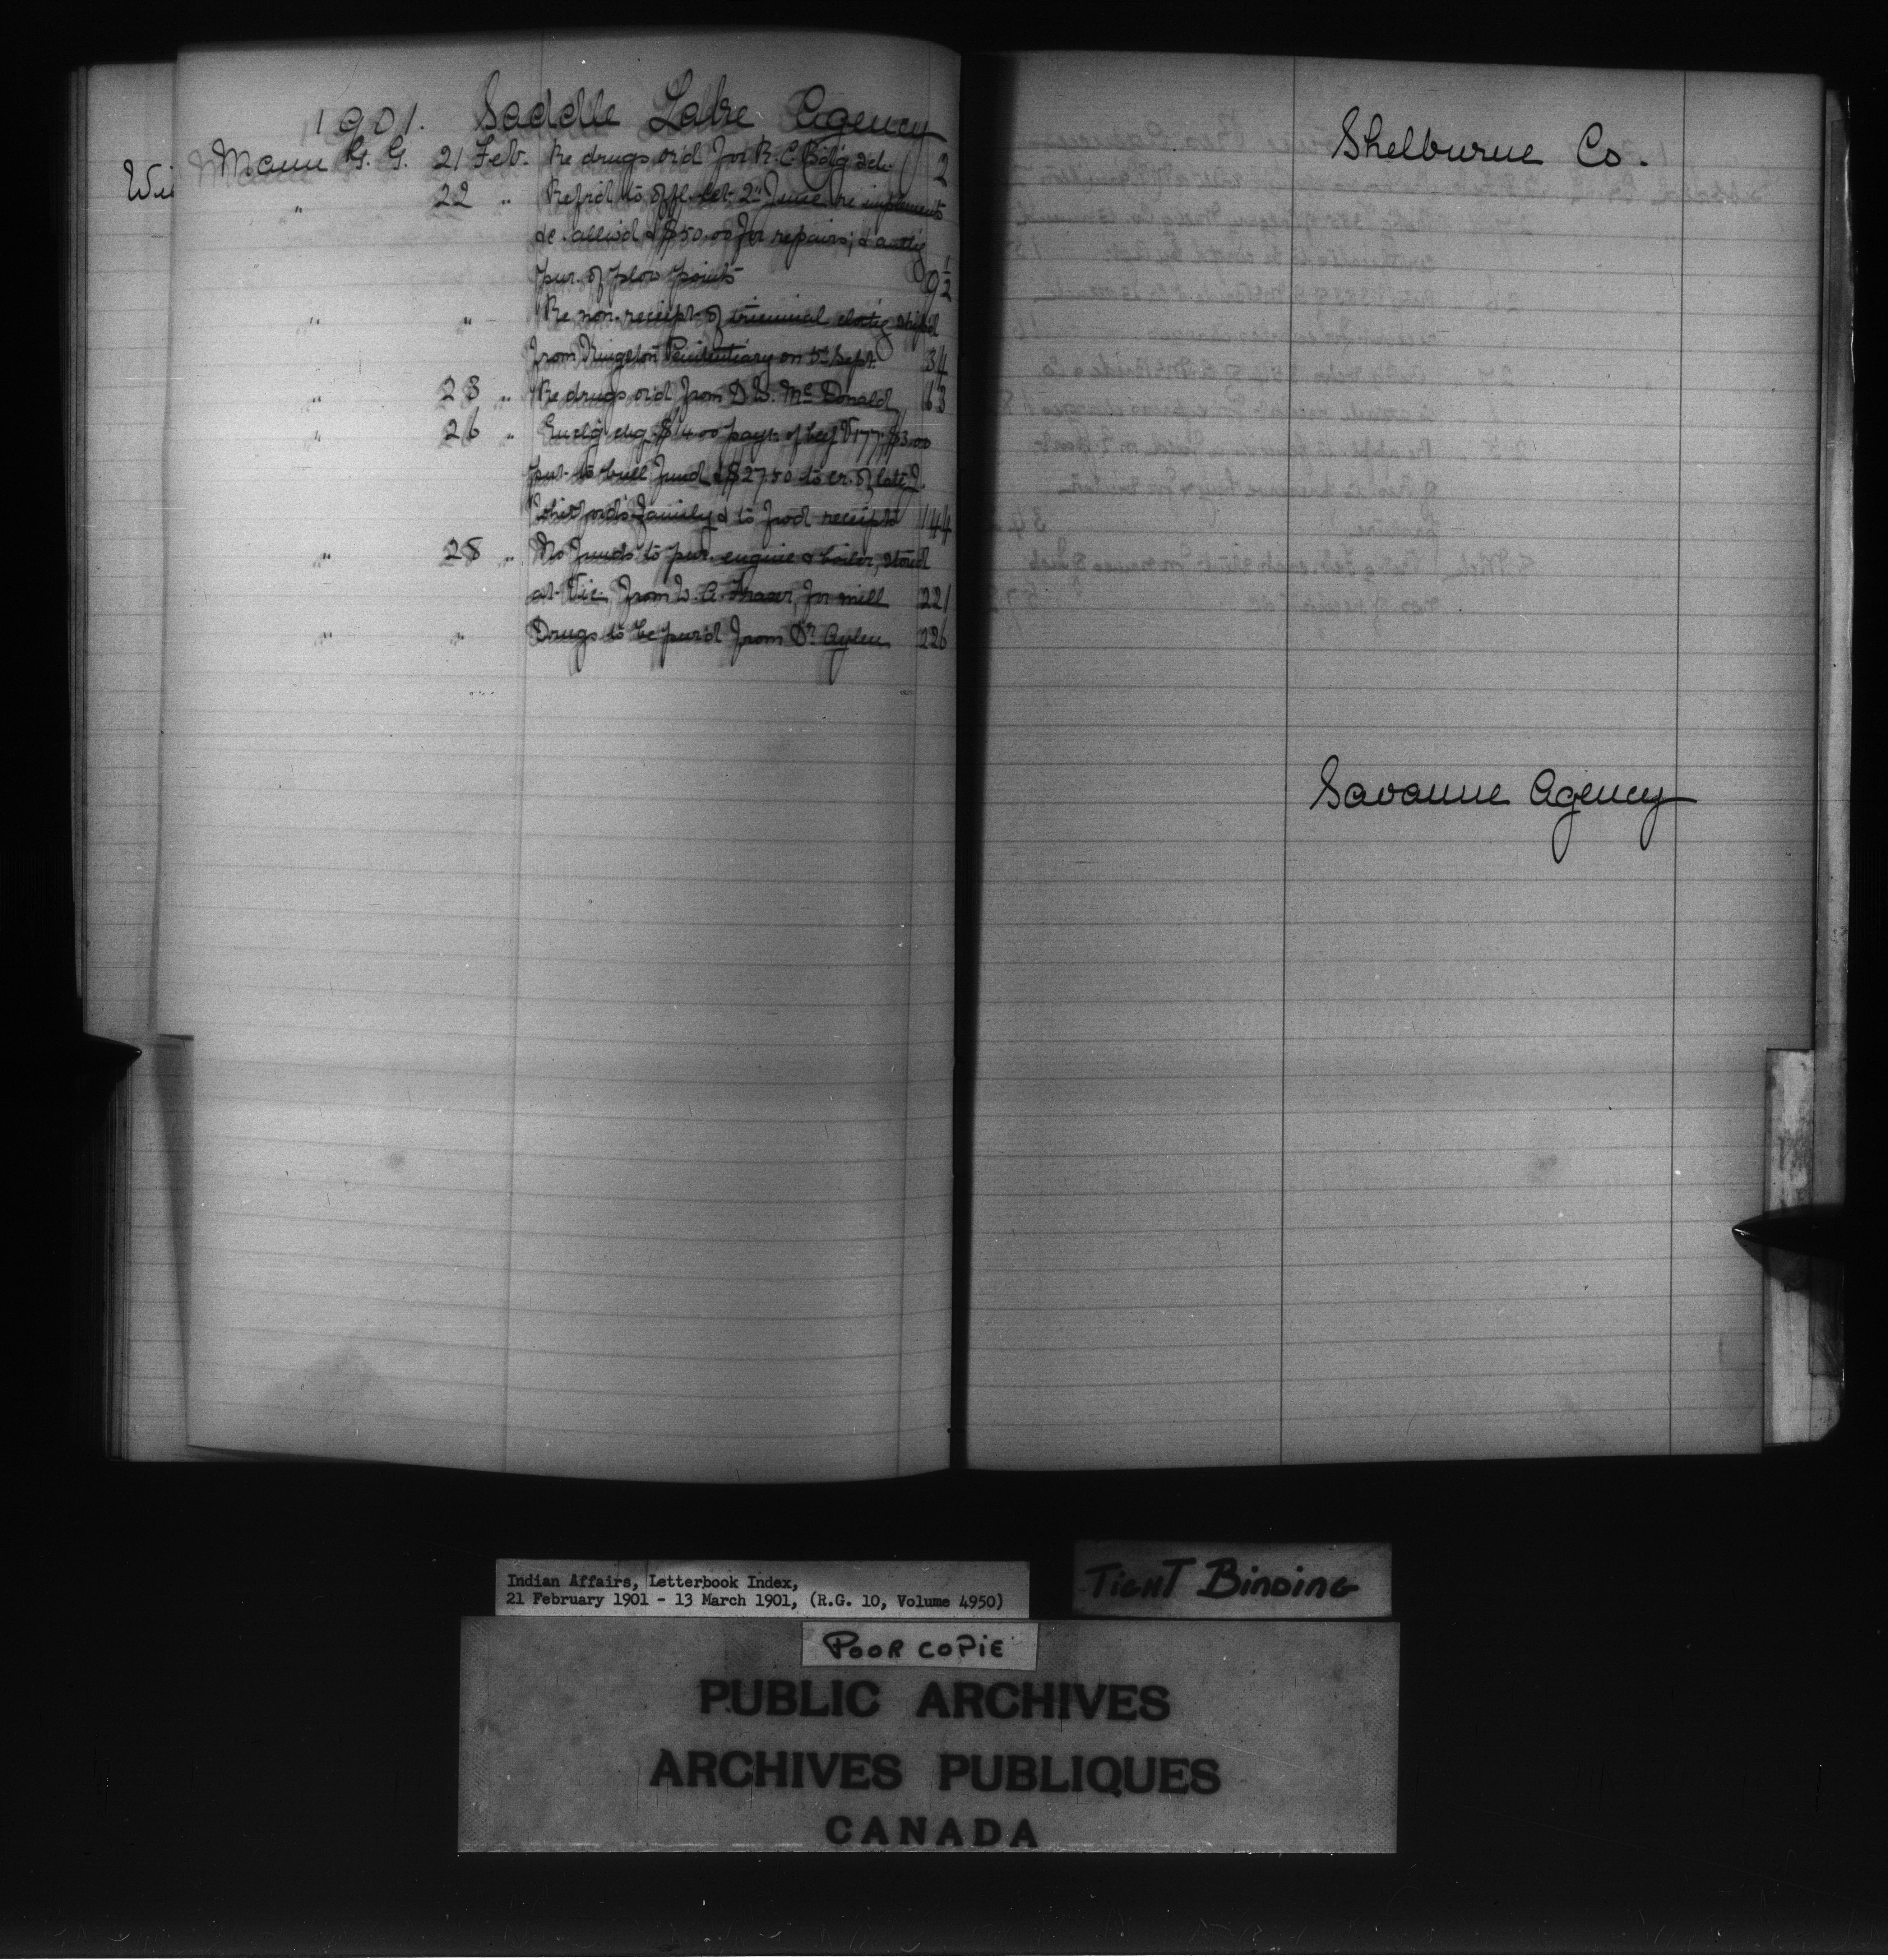 1901. Saddle Lake Agency
Wi
Mann G. G. 21 Feb. Re drugs ord for R. C. Bdg Sch. 2
" 22 " Refrd to offl. let. 2nd June re implements
de. allwd & $50.00 for repairs; & authg
pur. of plow points 9 1/2
" " Re non-receipt of triennial clothg shipd
from Kingston Penitentiary on 5th Sept. 34
" 23 " Re drugs ord from D. W. McDonald 63
" 26 " Enclg chq. $14.00 payt. of beef V177. $3.00
put to bull fund & $27.50 to cr. of late J.
Whitford's family & to fwd receipts 144
" 28 " No funds to pur. engine & boiler, stored
at Vic. from W. A. Fraser, for mill 221
" " Drugs to be purd from Dr. Aylen 226
Shelburne Co.
Savanne Agency
Indian Affairs, Letterbook Index,
21 February 1901 - 13 March 1901, (R.G. 10, Volume 4950)
TIGHT BINDING
POOR COPIE
PUBLIC ARCHIVES
ARCHIVES PUBLIQUES
CANADA